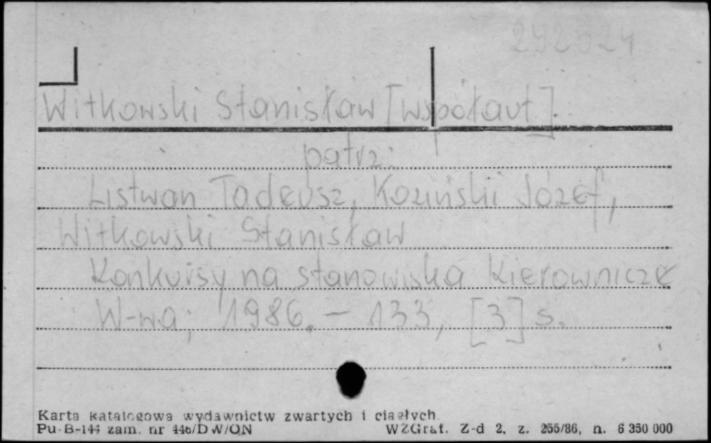 292524
Witkowski Stanisław [współaut].
patrz:
Listwan Tadeusz, Koziński Józef,
Witkowski Stanisław
Konkursy na stanowiska kierownicze
W-wa; 1986. – 133, [3] s.
Karta katalogowa wydawnictw zwartych i ciągłych
Pu-B-144 zam. nr 446/DW/ON WZGraf. Z-d 2, z. 255/86, n. 6 350 000